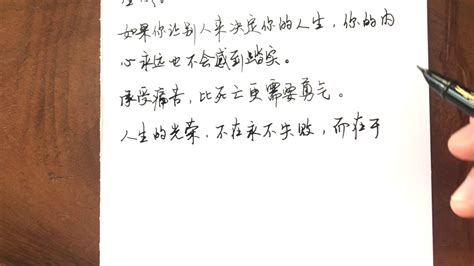 如果你让别人来决定你的人生，你的内
心永远也不会感到踏实。
承受痛苦，比死亡更需要勇气。
人生的光荣，不在永不失败，而在于